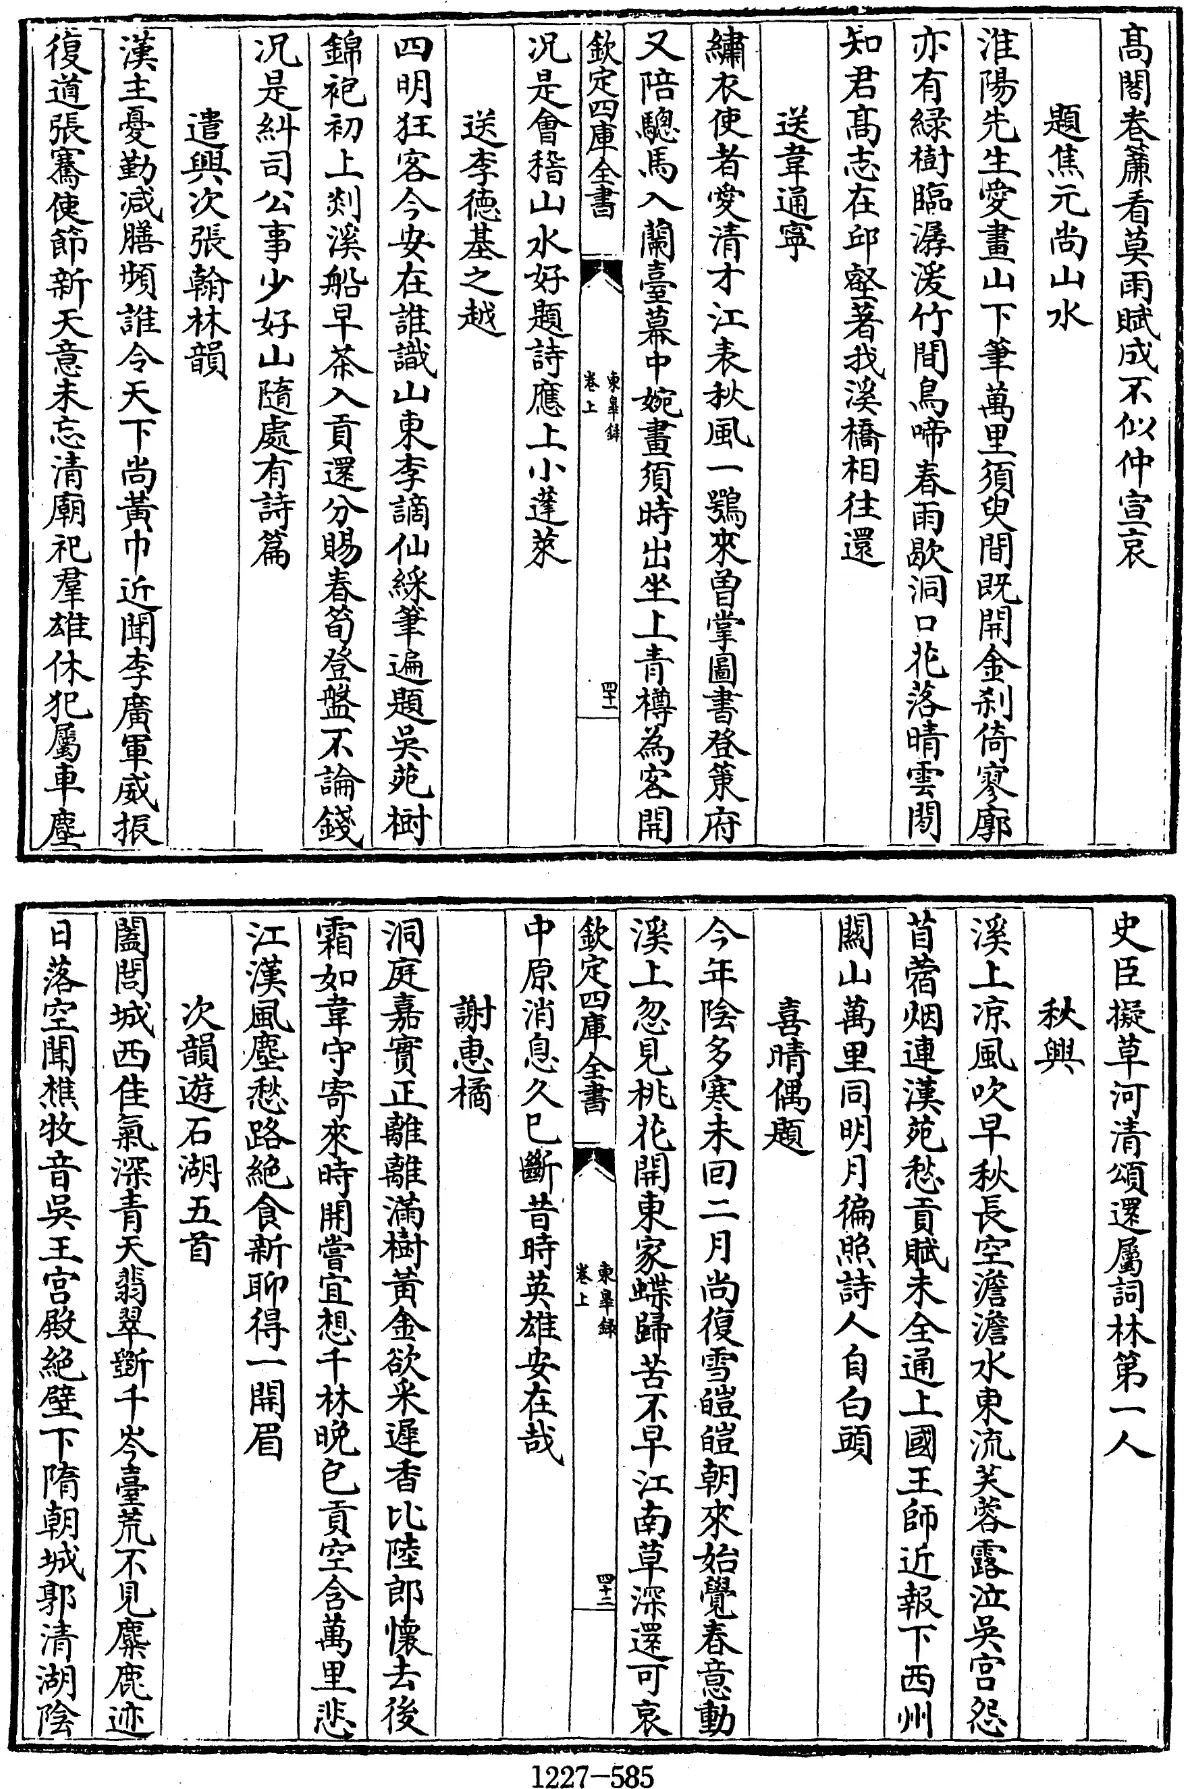 髙閣卷簾看莫雨賦成不似仲宣哀
題焦元尚山水
淮陽先生愛畫山下筆萬里須臾間既開金刹倚寥廓
亦有緑樹臨潺湲竹間鳥啼春雨歇洞口花落晴雲閒
知君髙志在邱壑著我溪橋相往還
送韋通寧
繡衣使者愛清才江表秋風一鶚來曽掌圖書登策府
又陪驄馬入蘭臺幕中婉畫須時出坐上青樽為客開
欽定四庫全書
東臯録
卷上
四十二
况是會稽山水好題詩應上小蓬萊
送李徳基之越
四明狂客今安在誰識山東李謫仙綵筆遍題吳苑樹
錦袍初上剡溪船早茶入貢還分賜春筍登盤不論錢
况是糾司公事少好山隨處有詩篇
遣興次張翰林韻
漢主憂勤減膳頻誰令天下尚黃巾近聞李廣軍威振
復道張騫使節新天意未忘清廟祀羣雄休犯屬車塵
史臣擬草河清頌還屬詞林第一人
秋興
溪上凉風吹早秋長空澹澹水東流芙蓉露泣吳宫怨
苜蓿烟連漢苑愁貢賦未全通上國王師近報下西州
闗山萬里同明月徧照詩人自白頭
喜晴偶題
今年陰多寒未回二月尚復雪皚皚朝來始覺春意動
溪上忽見桃花開東家蝶歸苦不早江南草深還可哀
欽定四庫全書
東臯録
卷上
四十三
中原消息久已斷昔時英雄安在哉
謝惠橘
洞庭嘉實正離離滿樹黃金欲采遲香比陸郎懷去後
霜如韋守寄來時開嘗宜想千林晚包貢空含萬里悲
江漢風塵愁路絶食新聊得一開眉
次韻遊石湖五首
闔閭城西佳氣深青天翡翠斷千岑臺荒不見麋鹿迹
日落空聞樵牧音吳王宫殿絶壁下隋朝城郭清湖陰
1227-585